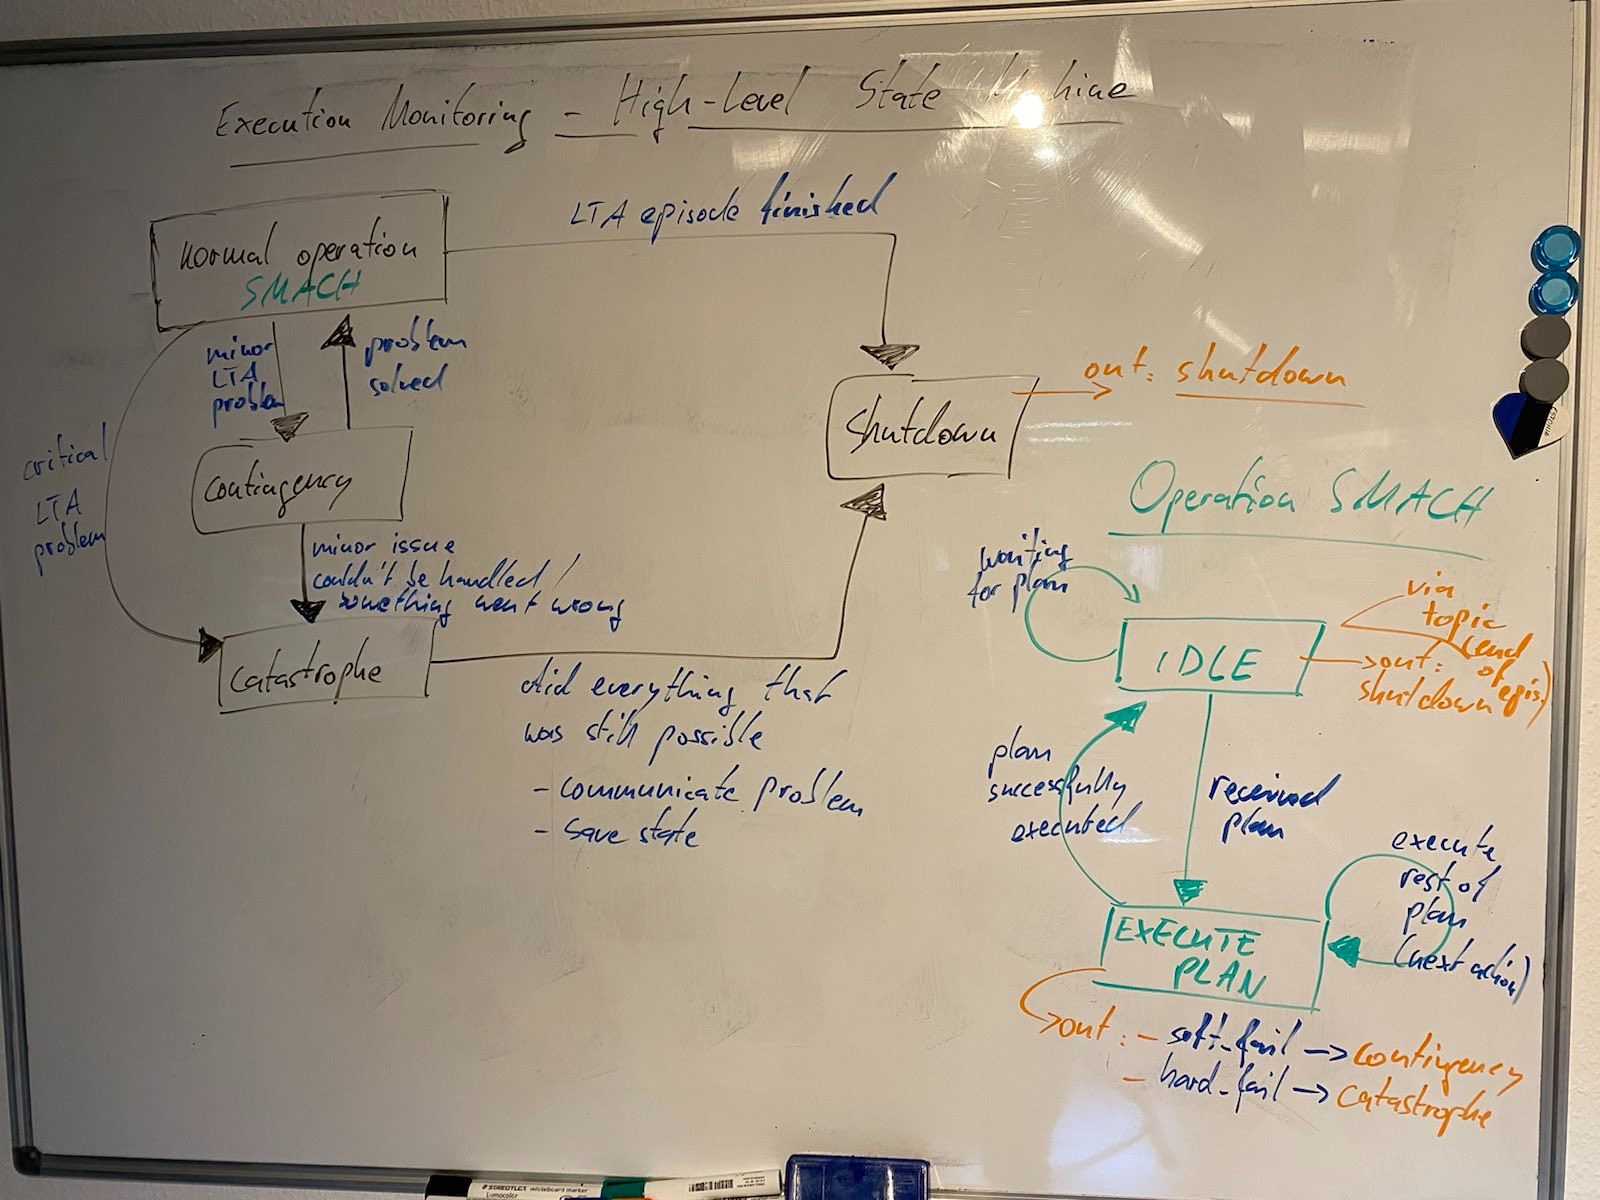 Execution Monitoring - High-Level State Machine
normal operation
SMACH
LTA episode finished
minor
LTA
problem
problem
solved
critical
LTA
problem
contingency
minor issue
couldn't be handled /
something went wrong
catastrophe
did everything that
was still possible
- communicate problem
- save state
shutdown
out: shutdown
Operation SMACH
waiting
for plan
IDLE
via
topic
(end
of
epis.)
out:
shutdown
plan
successfully
executed
received
plan
execute
rest of
plan
(next action)
EXECUTE
PLAN
out: - soft_fail -> contingency
- hard_fail -> catastrophe
STAEDTLER whiteboard marker
Lumocolor